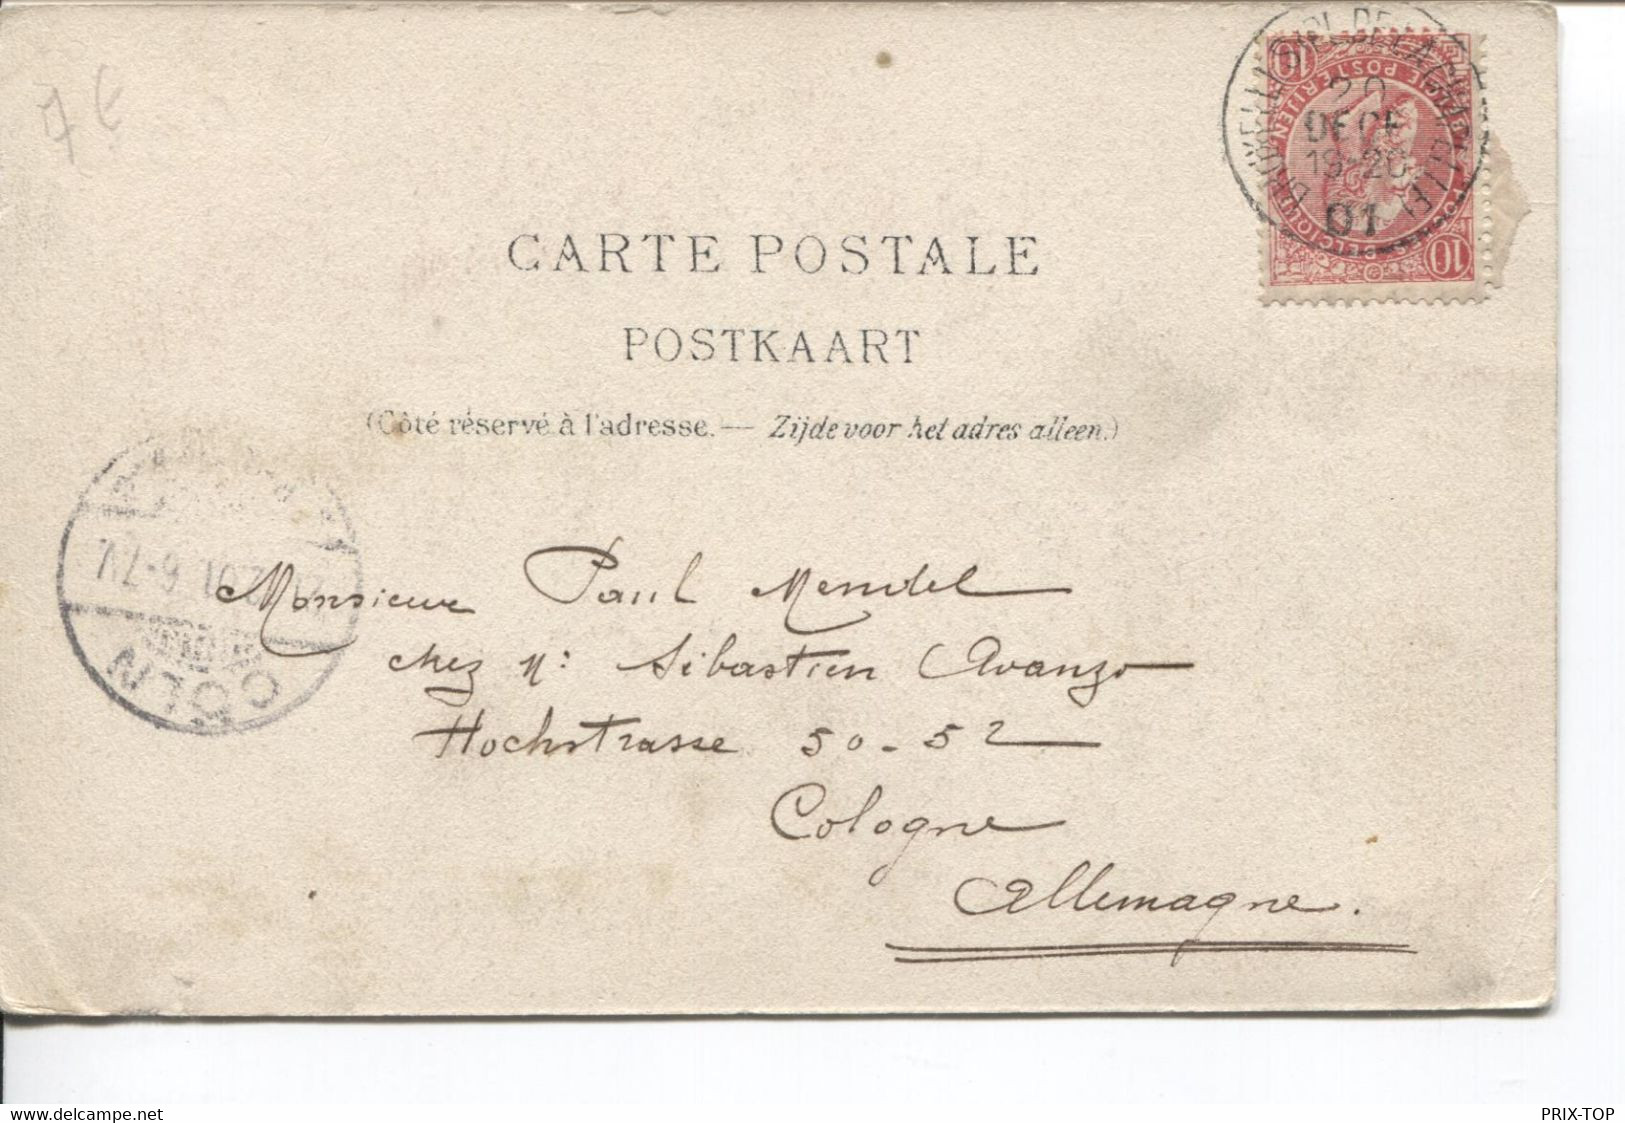 7 €
10
20
DECE
19-20
01
10
CARTE POSTALE
POSTKAART
(Côté réservé à l'adresse. — Zijde voor het adres alleen.)
6-7V
CÖLN
Monsieur Paul Mendel
chez Mr: Sébastien Avanzo
Hochstrasse 50-52
Cologne
Allemagne.
www.delcampe.net
PRIX-TOP